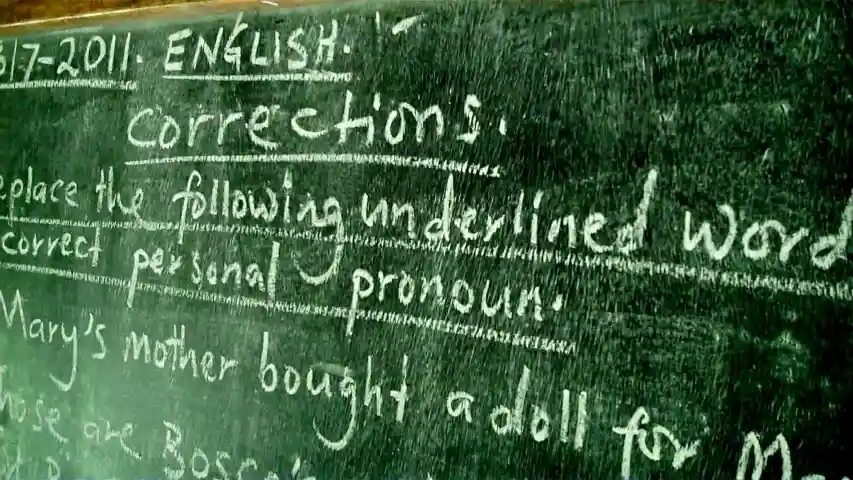 3/7-2011. ENGLISH.
Corrections.
eplace the following underlined word
correct personal pronoun.
Mary's mother bought a doll for M
hose are Bosco's